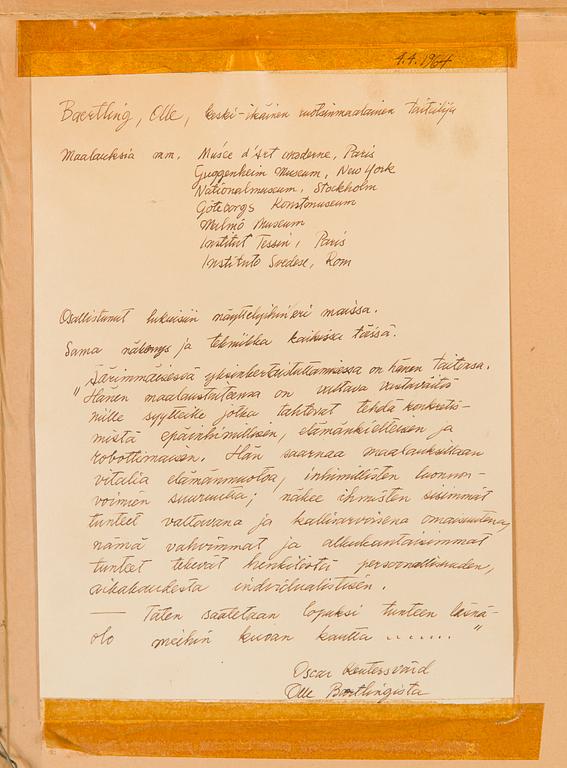 4.4.1964
Baertling, Olle, keski-ikäinen ruotsinmaalainen taiteilija
Maalauksia mm. Musée d'Art moderne, Paris
Guggenheim Museum, New York
Nationalmuseum, Stockholm
Göteborgs Konstmuseum
Malmö Museum
Institut Tessin, Paris
Instituto Svedese, Rom
Osallistunut lukuisiin näyttelyihin eri maissa.
Sama näkemys ja tekniikka kaikissa töissä.
Äärimmäisessä yksinkertaistuttamisessa on hänen taitonsa.
"Hänen maalaustaiteensa on valtava vastaväite
niille syytteille jotka tahtovat tehdä konkretis-
mista epäinhimillisen, elämänkielteisen ja
robottimaisen. Hän saarnaa maalauksillaan
vitalia elämänmuotoa, inhimillisten luonnon-
voimien suuruutta; näkee ihmisten sisimmät
tunteet valtavana ja kallisarvoisena omaisuutena,
nämä vahvimmat ja alkukantaisimmat
tunteet tekevät henkilöstä persoonallisuuden,
aikakaudesta individualistisen.
— Täten säätetään lopuksi tunteen läsnä-
olo meihin kuvan kautta ........"
Oscar Reutersvärd
Olle Baertlingista